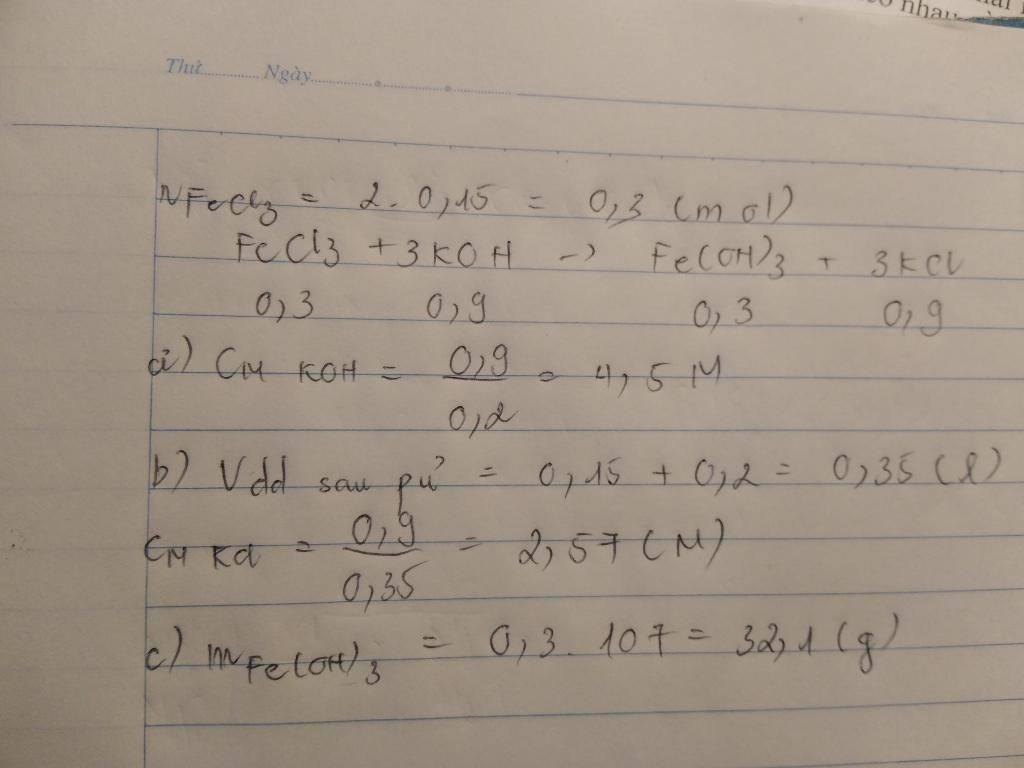 nhau
Thứ............ Ngày............
nFeCl3 = 2. 0,15 = 0,3 (mol)
FeCl3 + 3KOH -> Fe(OH)3 + 3KCl
0,3 0,9 0,3 0,9
a) CM KOH = 0,9 / 0,2 = 4,5 M
b) Vdd sau pứ = 0,15 + 0,2 = 0,35 (l)
CM KCl = 0,9 / 0,35 = 2,57 (M)
c) mFe(OH)3 = 0,3. 107 = 32,1 (g)